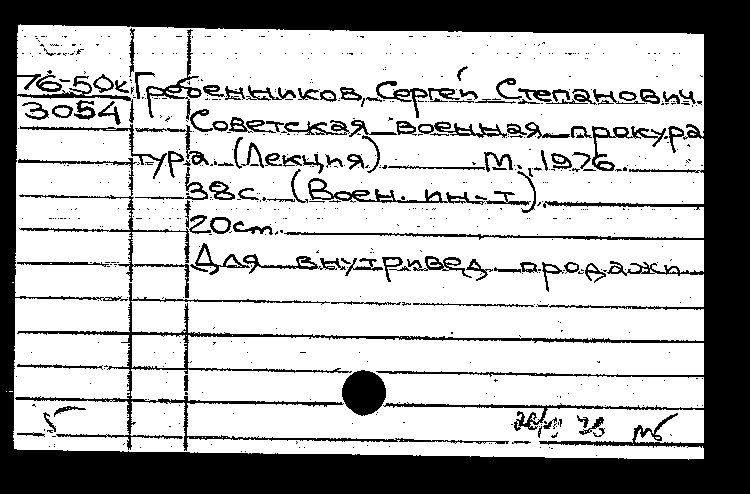 76-50к Гребенников, Сергей Степанович.
3054 Советская военная прокура
тура. (Лекция). М., 1976.
38с. (Воен. ин-т).
20см.
Для внутривед. продажи